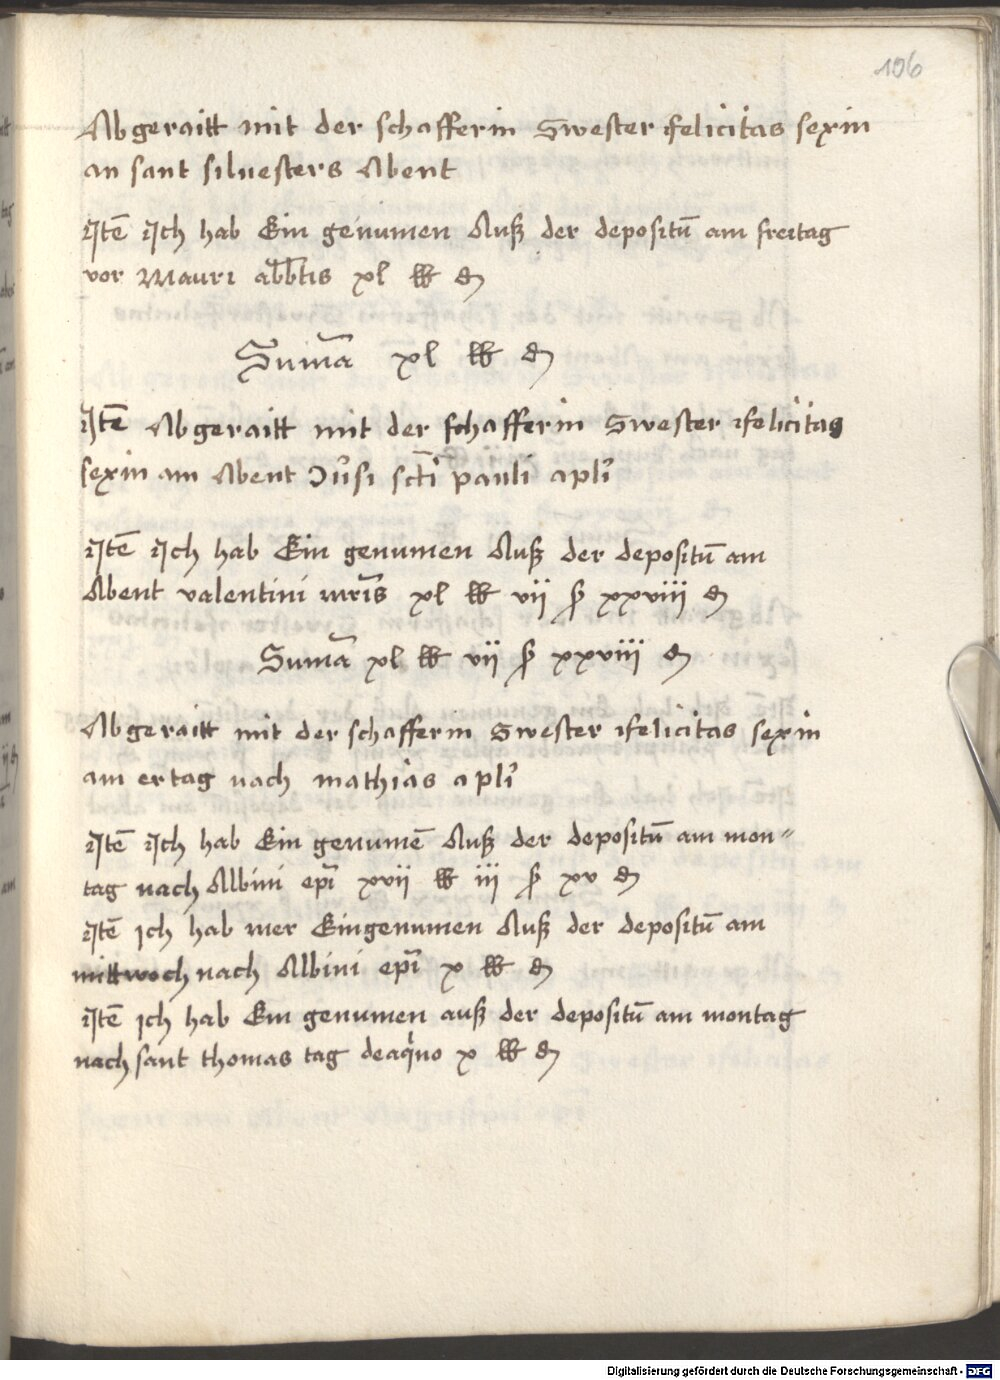 106
Abgeraitt mit der schafferin Swester felicitas sexin
an sant siluesters Abent
Itē Ich hab Ein genumen Auß der depositū am freitag
vor Mauri abb̄tis xl lb ₰
Sum̄a xl lb ₰
Itē Abgeraitt mit der schafferin Swester felicitas
sexin am Abent 9ũsi sct̄i pauli apl̃i
Itē Ich hab Ein genumen Auß der depositū am
Abent valentini mr̄is xl lb vii ß xxviii ₰
Sum̄a xl lb vii ß xxviii ₰
Abgeraitt mit der schafferin Swester felicitas sexin
am ertag nach mathias apl̃i
Itē Ich hab Ein genumē Auß der depositū am mon⸗
tag nach Albini ep̄i xvii lb iii ß xv ₰
Itē Ich hab mer Eingenumen Auß der depositū am
mittwoch nach Albini ep̄i x lb ₰
Itē Ich hab Ein genumen auß der depositū am montag
nach sant thomas tag deaq̇no x lb ₰
Digitalisierung gefördert durch die Deutsche Forschungsgemeinschaft - DFG